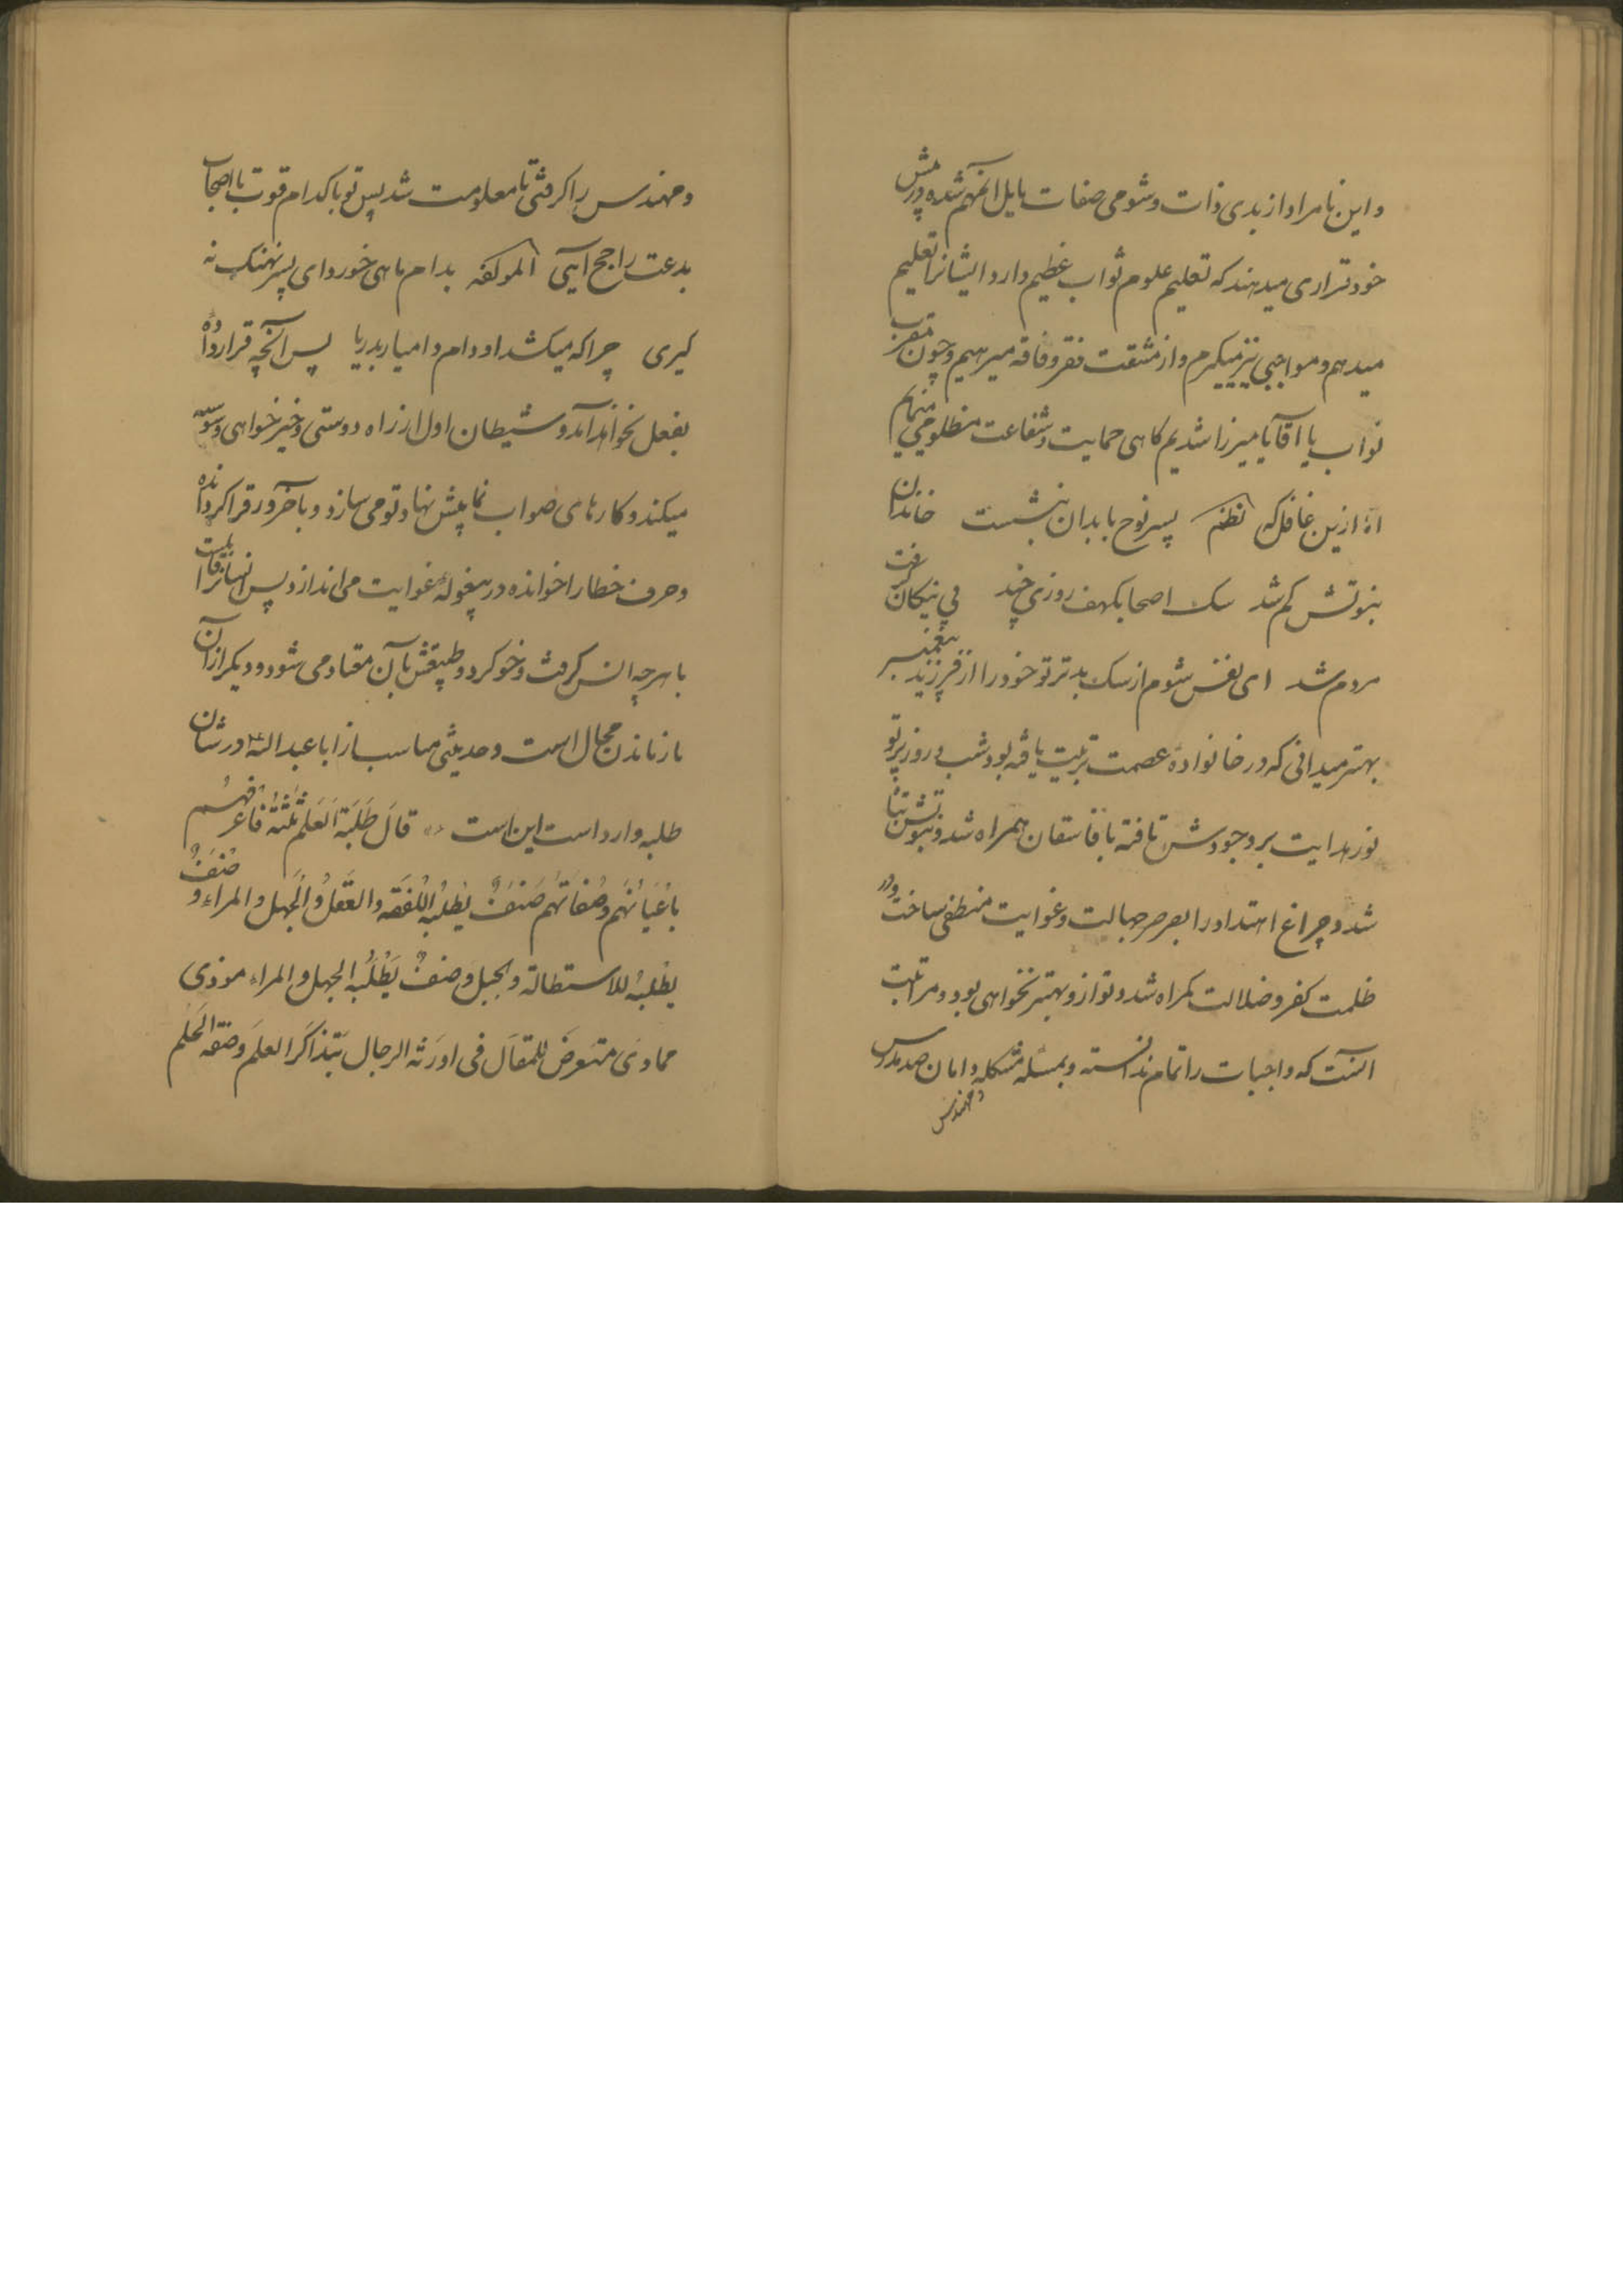 و این نامراد از بدی ذات و شومی صفات مایل آنهم شده در پیش
خود قراری میدهند که تعلیم علوم ثواب عظیم دارد ایشانرا تعلیم
میدهم و مواجبی نیز میگیرم و از مشقت فقر و فاقه میرهیم و چون مقرب
نواب یا آقا یا میرزا شدیم کاهی حمایت و شفاعت مظلومی مینمایم
اه ازین غافل که نظم پسر نوح با بدان بنشست خاندان
نبوتش کم شد سک اصحاب کهف روزی چند پی نیکان گرفت
مردم شد ای نفس شوم از سک بدتر تو خود را از فرزند پیغمبر
بهتر میدانی که در خانواده عصمت تربیت یافته بود شب و روز پرتو
نور هدایت بر وجودش تافته با فاسقان همراه شد و نبوتش تباه
شد و چراغ اهتدا او را بصرصر جهالت و غوایت منطفی ساخت و در
ظلمت کفر و ضلالت کمراه شد و تو از و بهتر نخواهی بود و مراتبت
آنست که واجبات را تمام ندانسته و بمسئله مشکله دامان صد مدرس
و مهندس
و مهندس را گرفتی تا معلومت شد پس تو با کدام قوت با اصحاب
بدعت راجح آیی لمولفه بدام ماهی خورد ای پسر نهنک نه
کیری چرا که میکشد او دام و دامیار بدریا پس آنچه قرار داده
بفعل نخواهد آمد و شیطان اول از راه دوستی و خیرخواهی وسوسه
میکند و کارهای صواب نما پیش نهاد تو می سازد و بآخر ورق را کردانده
و حرف خطا را خوانده در بیغوله غوایت می اندازد پس انسانرا قابلیت
با هرچه انس گرفت و خو کرد و طبیعتش بآن معتاد می شود و دیکر از آن
باز ماندن محال است و حدیثی مناسب از ابا عبدالله ع در شان
طلبه وارد است این است قال طَلَبَة العلم ثلثة فاعرفهم
باعیانهم و صفاتهم صنف یطلبه للفقه و العقل و الجهل و المراء و صنف
یطلبه للاستطالة و الختل و صنف یطلبه الجهل و المراء موذی
مماری متعرض للمقال فی اندیة الرجال بتذاکر العلم و صفة الحلم